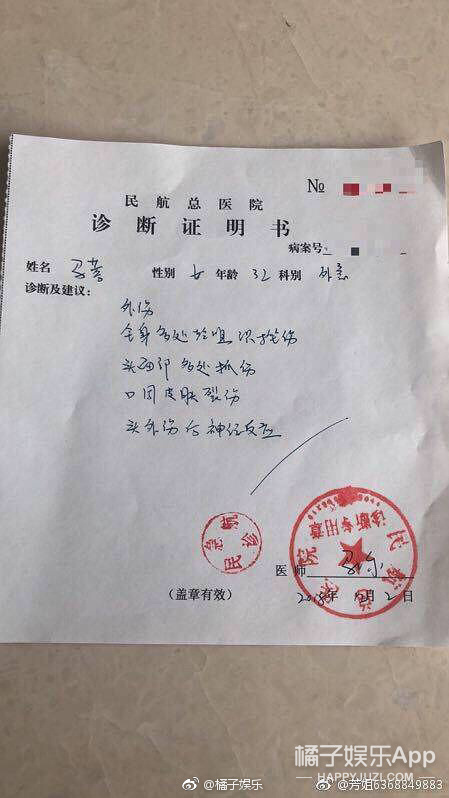 民航总医院
№
诊断证明书
病案号
姓名 马蓉 性别 女 年龄 32 科别 外急
诊断及建议：
外伤
全身多处软组织挫伤
头面部多处抓伤
口周皮肤裂伤
头外伤后神经反应
民航急诊
诊断专用章
民航总医院
医师
（盖章有效）
2018年 月2日
橘子娱乐App
HAPPYJUZI.COM
@橘子娱乐
@芳姐6368849883